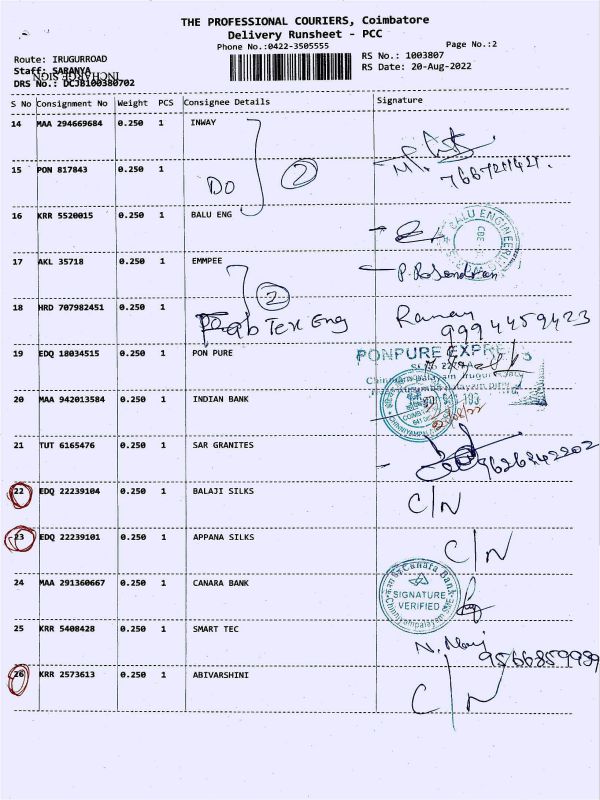 THE PROFESSIONAL COURIERS, Coimbatore
Delivery Runsheet - PCC
Phone No.:0422-3505555
Page No.:2
Route: IRUGURROAD
RS No.: 1003807
Staff: SARANYA
INCHARGE SIGN
RS Date: 20-Aug-2022
DRS No.: DCJB100380702
S No Consignment No Weight PCS Consignee Details Signature
14 MAA 294669684 0.250 1 INWAY
15 PON 817843 0.250 1
DO 2
16 KRR 5520015 0.250 1 BALU ENG
BALU ENGINEERING
CBE
17 AKL 35718 0.250 1 EMMPEE
2
18 HRD 707982451 0.250 1
Tex Eng
Raman
9994459423
19 EDQ 18034515 0.250 1 PON PURE
PONPURE EXPRESS
20 MAA 942013584 0.250 1 INDIAN BANK
21 TUT 6165476 0.250 1 SAR GRANITES
9626242202
22 EDQ 22239104 0.250 1 BALAJI SILKS
C/N
23 EDQ 22239101 0.250 1 APPANA SILKS
C/N
24 MAA 291360667 0.250 1 CANARA BANK
Canara Bank
SIGNATURE
VERIFIED
Chinniyampalayam SME
25 KRR 5408428 0.250 1 SMART TEC
9566859989
26 KRR 2573613 0.250 1 ABIVARSHINI
C/N